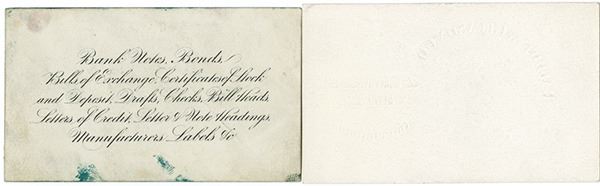 Bank Notes, Bonds,
Bills of Exchange, Certificates of Stock
and Deposit, Drafts, Checks, Bill Heads,
Letters of Credit, Letter & Note Headings,
Manufacturers Labels &c